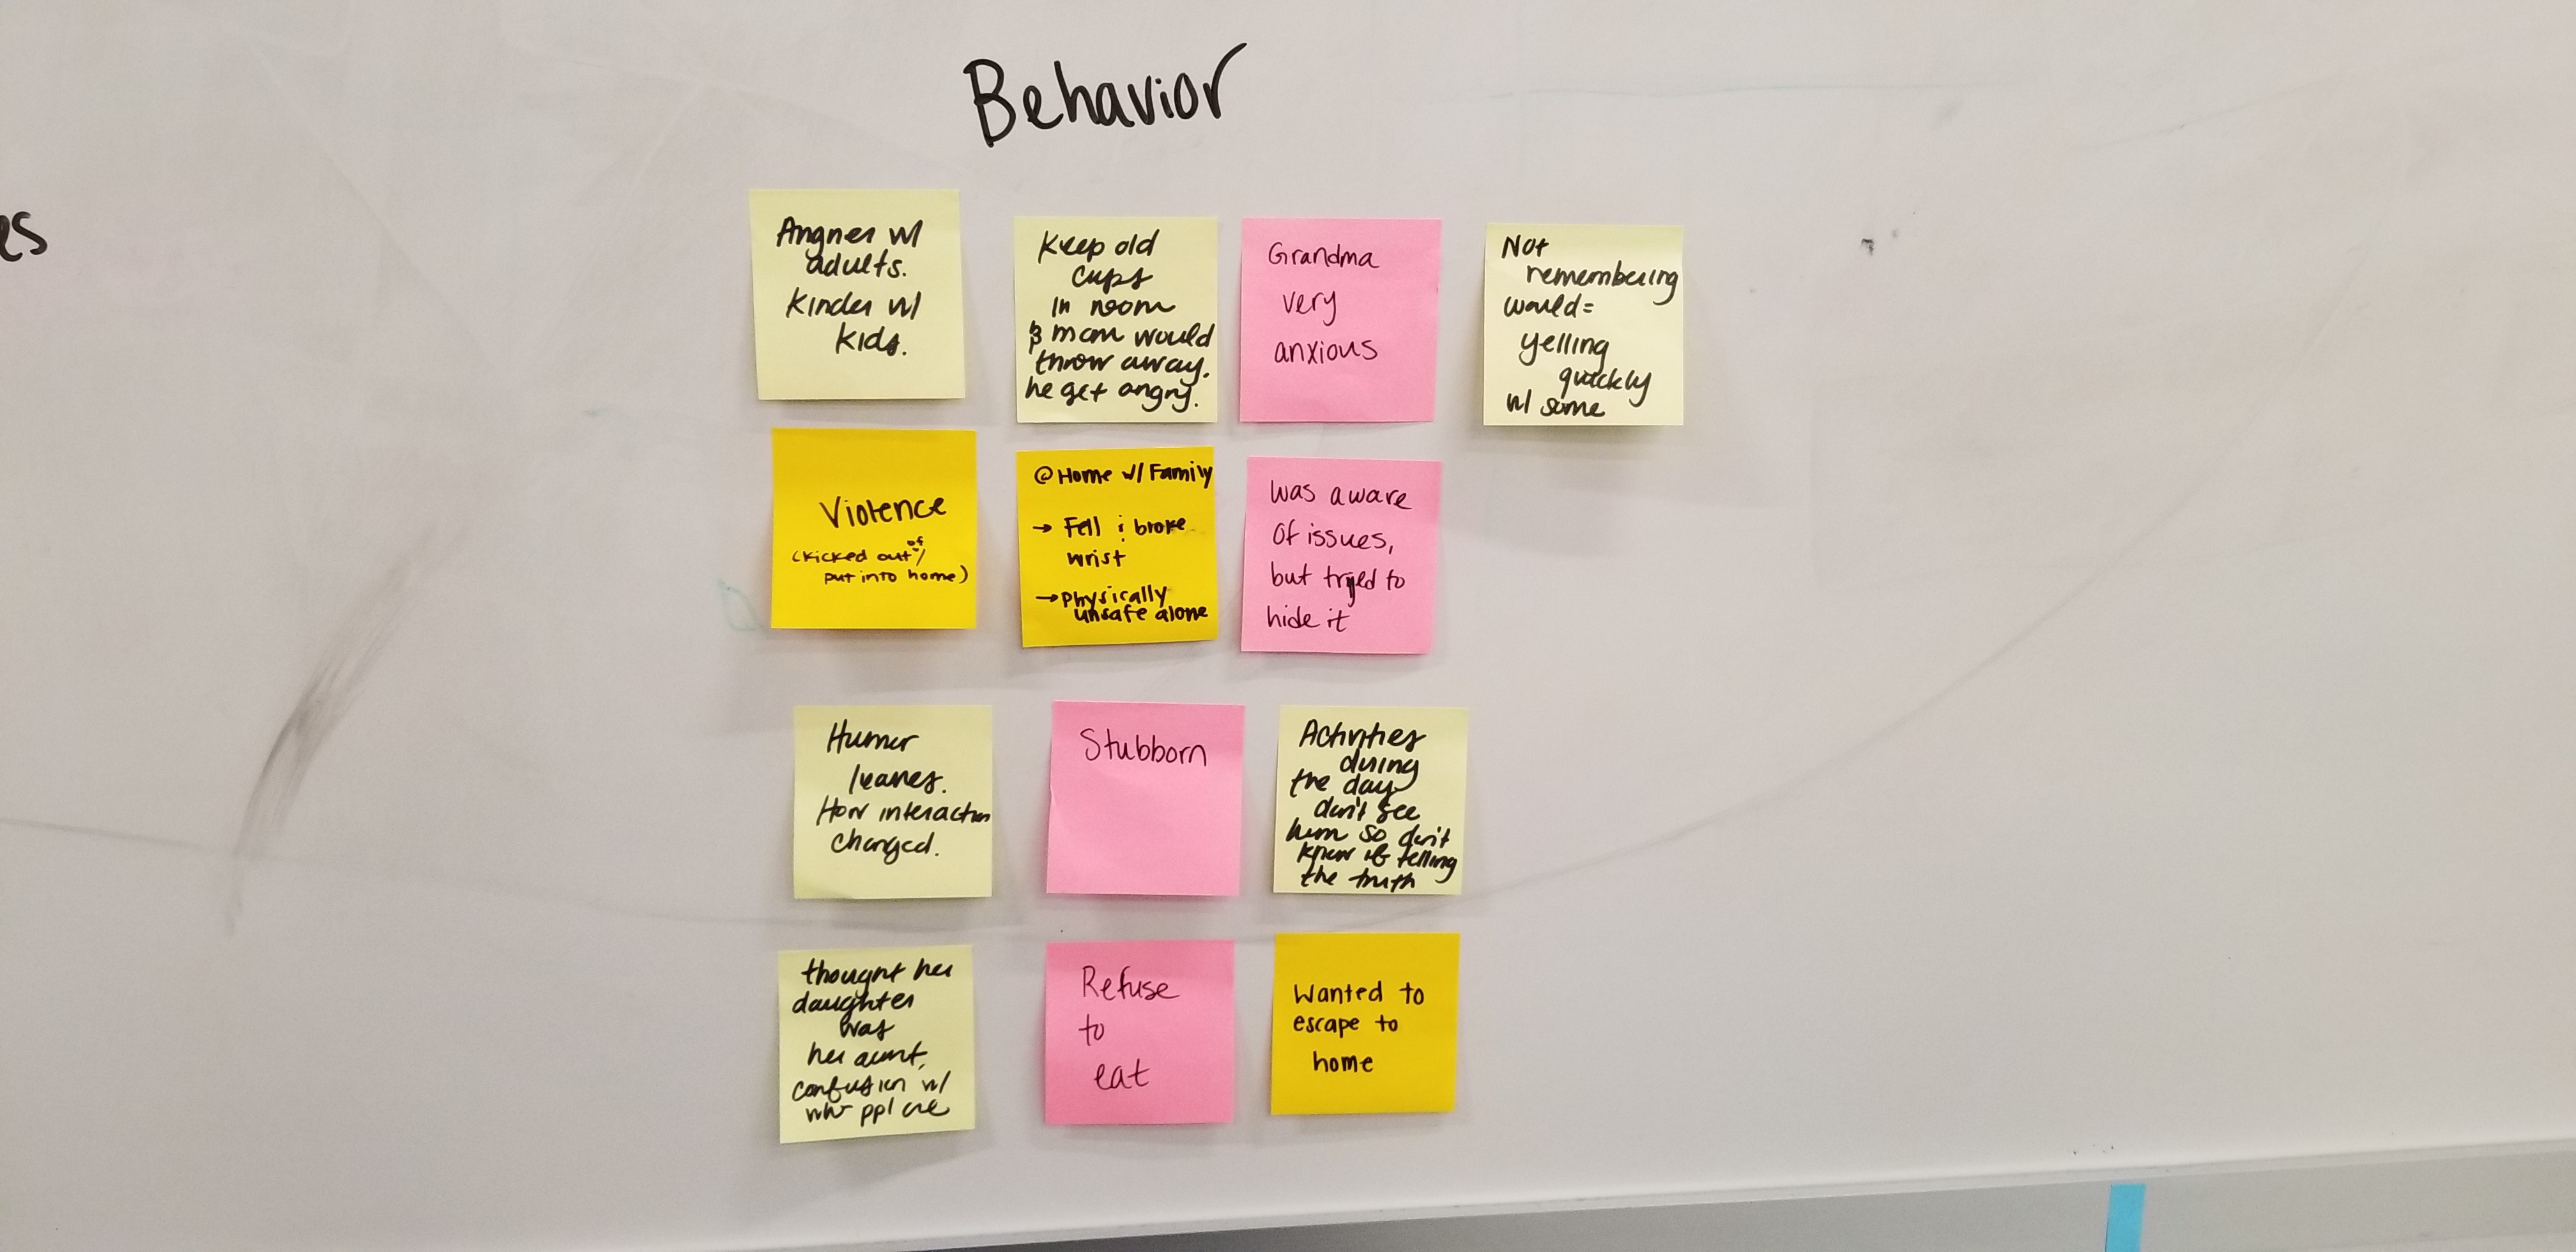 Behavior
es
Angrier w/
adults.
Kinder w/
kids.
Keep old
cups
in room
& mom would
throw away.
he get angry.
Grandma
very
anxious
Not
remembering
would=
yelling
quickly
w/ some
Violence
(kicked out of/
put into home)
@Home w/ Family
→ Fell & broke
wrist
→ Physically
unsafe alone
Was aware
of issues,
but tryed to
hide it
Humor
leaves.
How interaction
changed.
Stubborn
Activities
during
the day
don't see
him so don't
know if telling
the truth
thought her
daughter
was
her aunt,
confusion w/
who ppl are
Refuse
to
eat
Wanted to
escape to
home